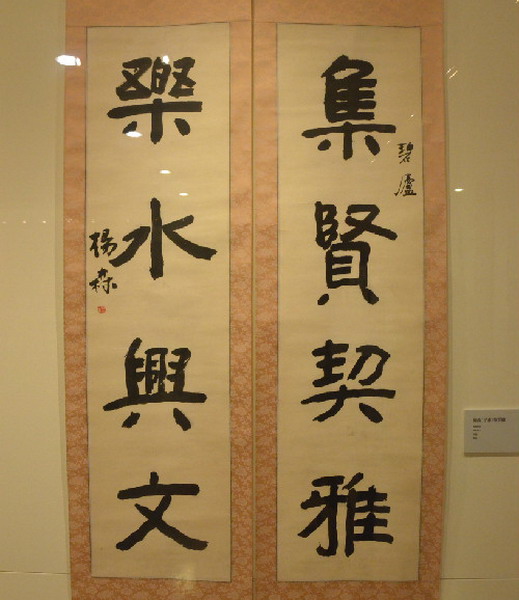 集賢契雅
碧廬
樂水興文
楊森